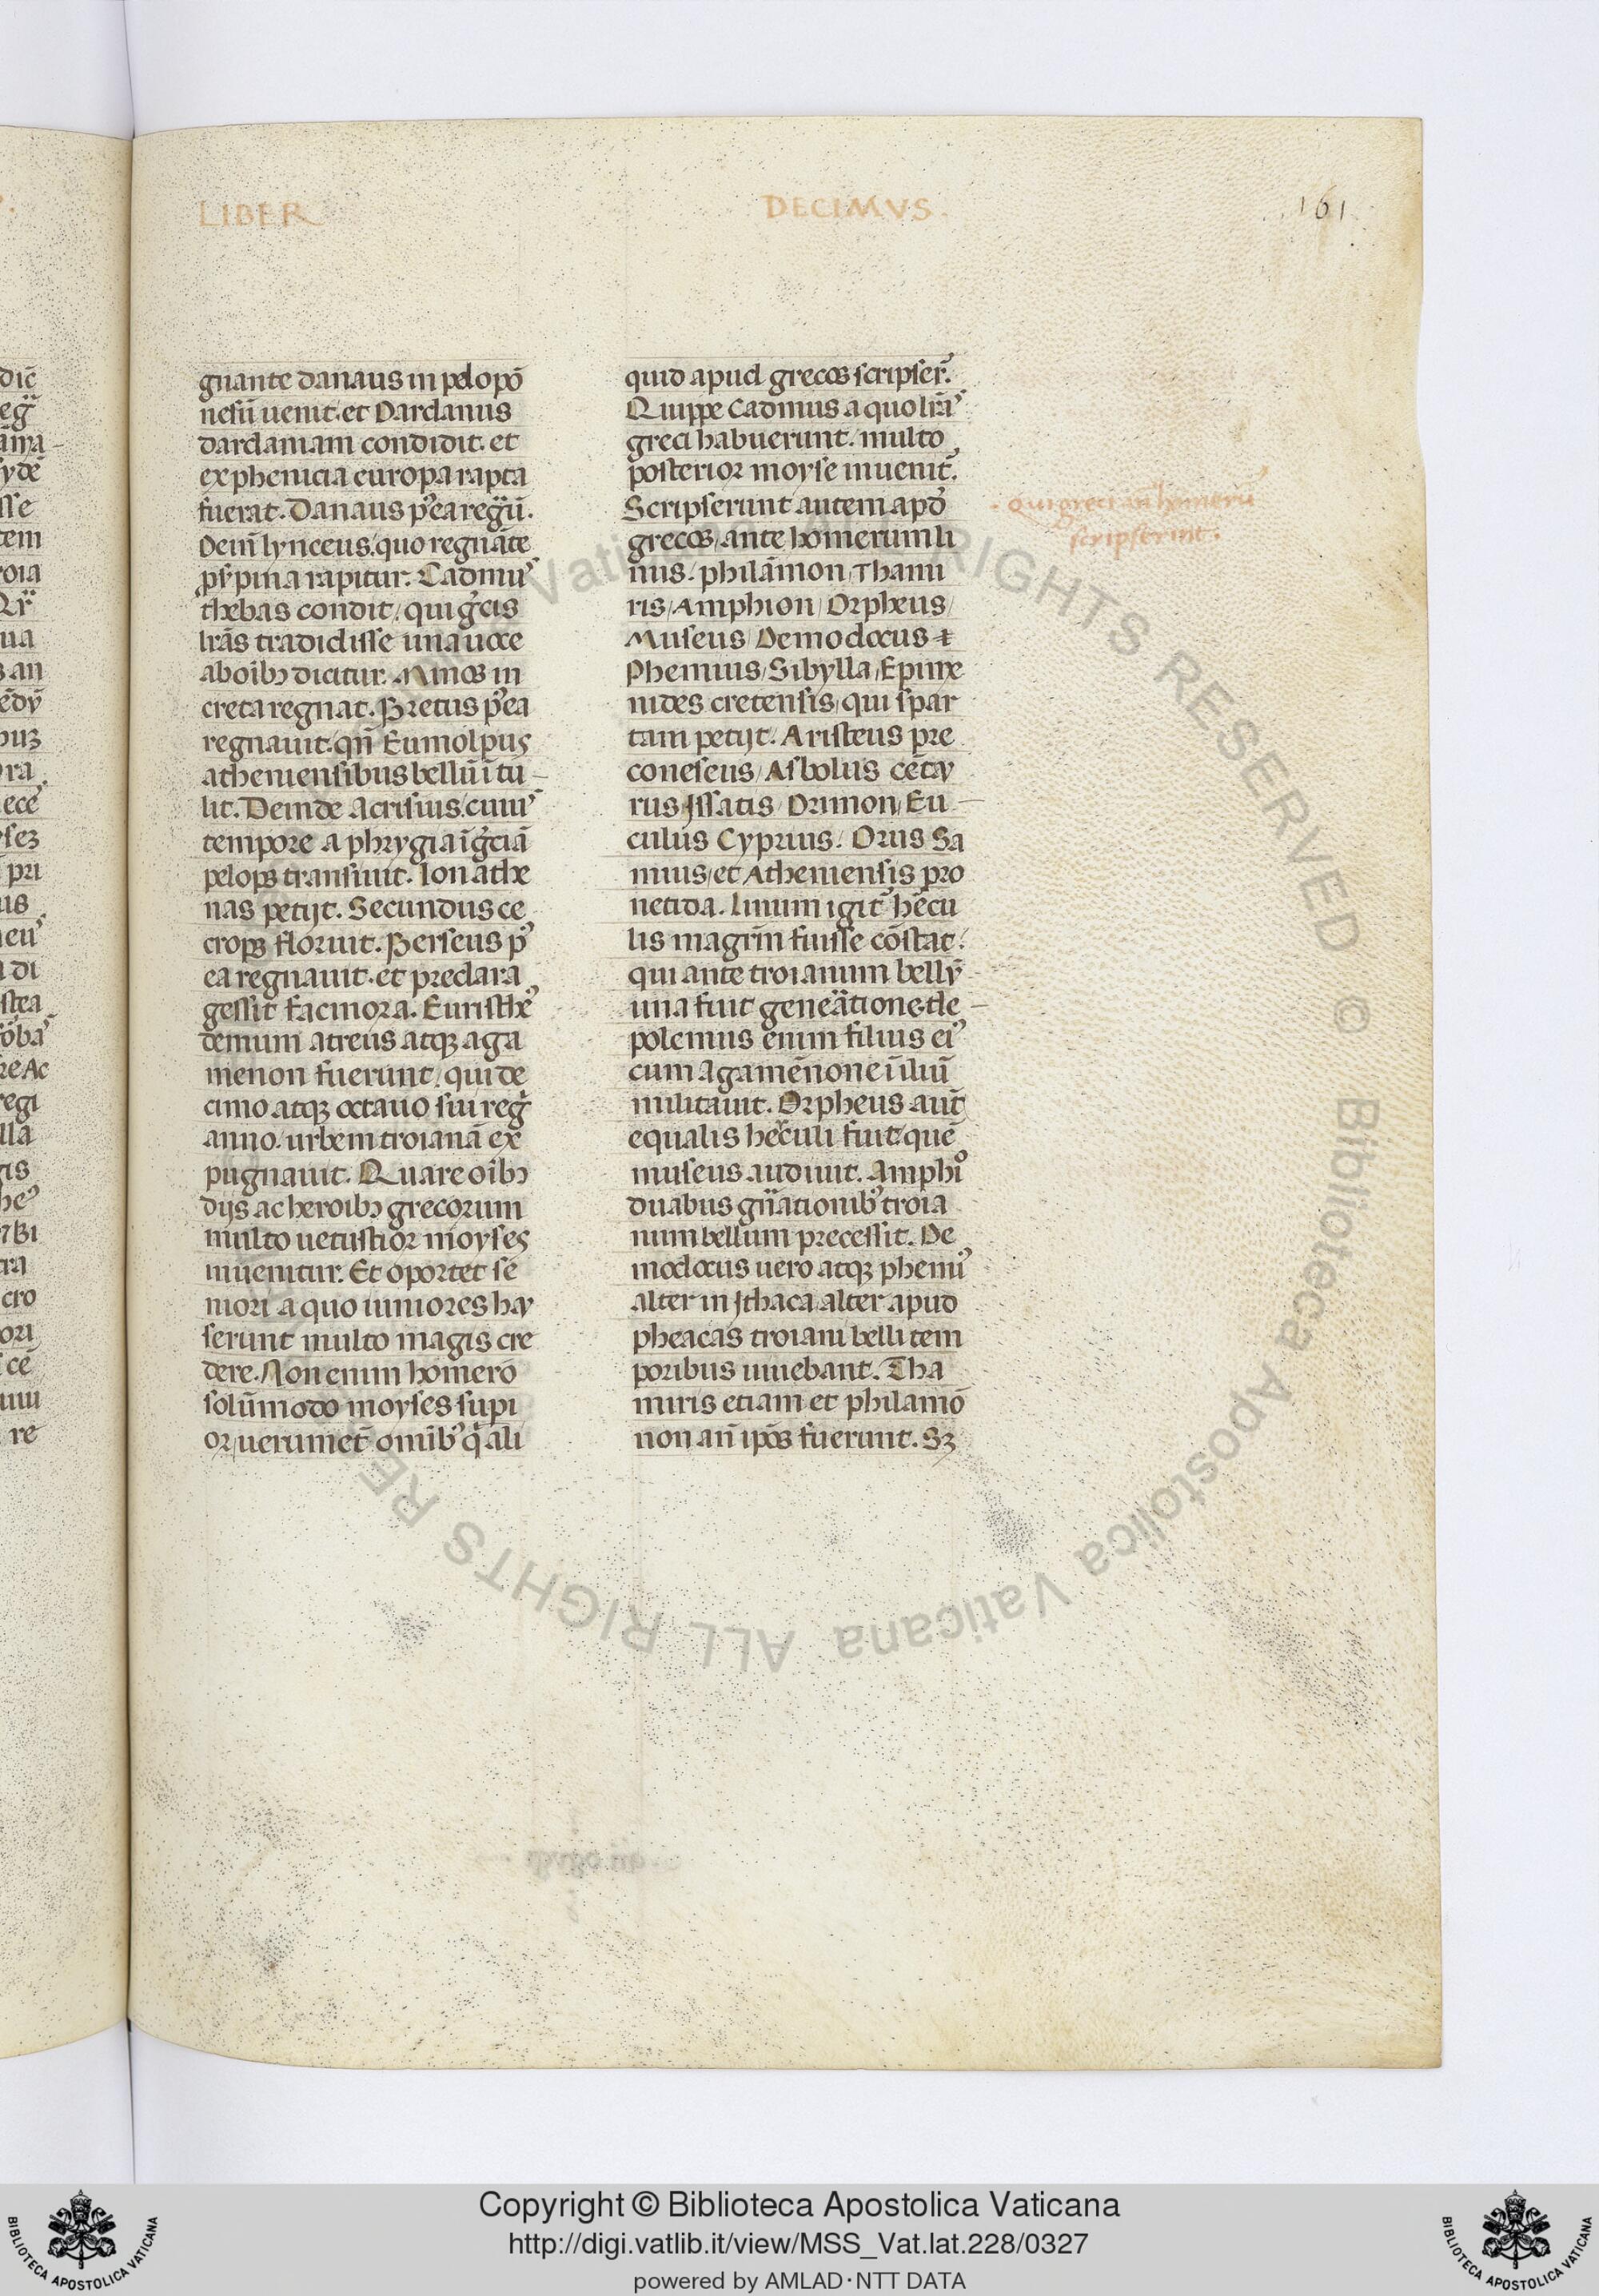 LIBER
DECIMVS.
161
gnante danaus in pelopō
nesū uenit. et Dardanus
dardaniam condidit. et
ex phenicia europa rapta
fuerat. Danaus p̓ ea regū.
Dein̄ lynceus. quo regnāte
rapitur. Cadmuˀ
thebas condit, qui g̓cis
lr̄as tradidisse una uoce
ab oīb dicitur. Minos in
creta regnat. Pretus p̓ ea
regnauit. qn̄ Eumolpus
atheniensibus bellū ītu
lit. Deinde Acrisius. cuiuˀ
tempore a phrygia ī g̓ciā
pelops transiuit. Ion athe
nas petijt. Secundus ce
crops floruit. Perseus p̓
ea regnauit. et preclara
gessit facinora. Euristheˀ
demum atreus atqꝫ aga
menon fuerunt, qui de
cimo atqꝫ octauo sui reg̓
anno. urbem troianā ex
pugnauit. Quare oīb
dijs ac heroib grecorum
multo uetustior moyses
inuenitur. Et oportet se
niori a quo iuniores hau
serunt multo magis cre
dere. Non enim homero
solūmodo moyses supi
or, uerumet̄ omībˀ q̄ ali
quid apud grecos scripser̄.
Quippe Cadmus a quo lr̄aˀ
greci habuerunt. multo
posterior moyse inuenit̄.
Scripserunt autem apd̓
grecos, ante homerum li
nus. philāmon, Thami
ris, Amphion, Orpheus,
Museus, Demodocus ⁊
Phemius, Sibylla, Epime
nides cretensis, qui spar
tam petijt. Aristeus pre
coneseus, Asbolus cētau
rus, Issatis, Drimon, Eu
culus Cyprius. Orus Sa
mius, et Atheniensis pro
netida. Linum igit̄ hēcu
lis magrm̄ fuisse cōstat.
qui ante troianum bellū
una fuit geneātione. tle
polemus enim filius eiˀ
cum Agamēnone ī iliū
militauit. Orpheus aut̄
equalis herculi fuit, quē
museus audiuit. Amphiᵒ
duabus gn̄ationibˀ troia
num bellum precessit. De
modocus uero atqꝫ phemiˀ
alter in Ithaca, alter apud
pheacas troiani belli tem
poribus uiuebant. Tha
miris etiam et philamō
non an̄ ipōs fuerunt. Sꝫ
Qui greci an̄ homerū
scripserint.
Copyright © Biblioteca Apostolica Vaticana
http://digi.vatlib.it/view/MSS_Vat.lat.228/0327
powered by AMLAD·NTT DATA